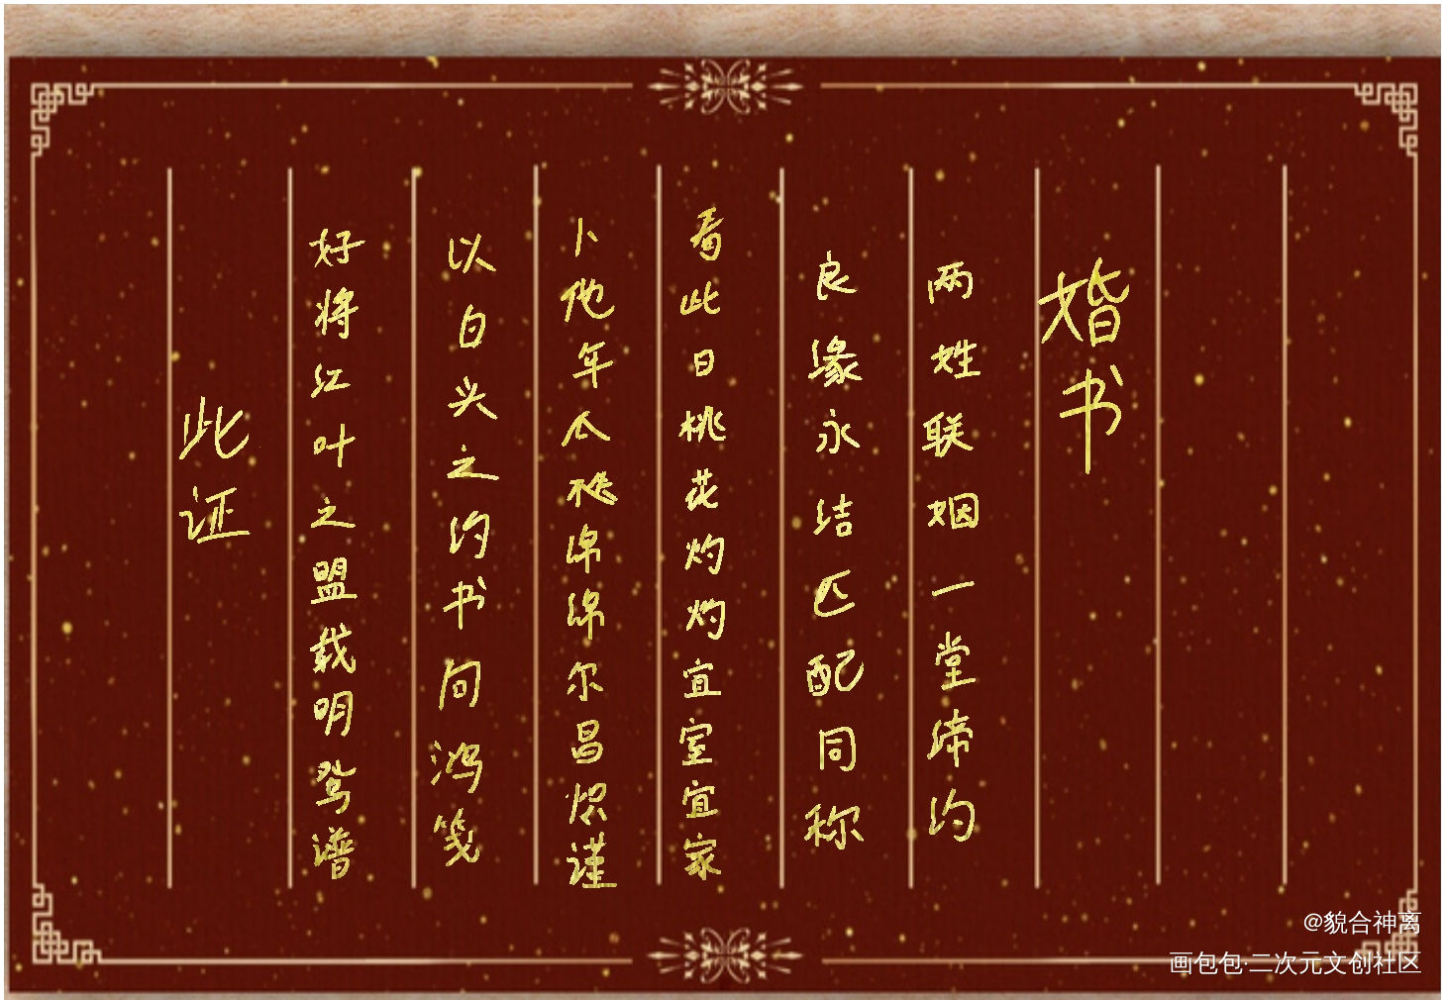 婚书
两姓联姻一堂缔约
良缘永结匹配同称
看此日桃花灼灼宜室宜家
卜他年瓜桃绵绵尔昌炽谨
以白头之约书向鸿笺
好将红叶之盟载明鸳谱
此证
@貌合神离
画包包·二次元文创社区